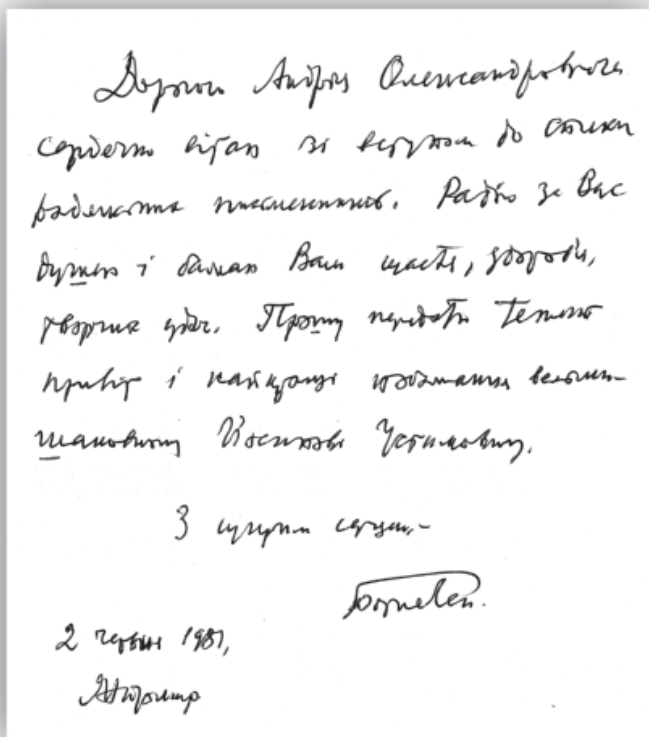 Дорогий Андрію Олександровичу
сердечно вітаю зі вступом до спілки
радянських письменників. Радію за Вас
дуже і бажаю Вам щастя, здоров'я,
творчих удач. Прошу передати теплий
привіт і найкращі побажання вельми-
шановному Йосипові Устимовичу.
З щирим серцем,-
2 червня 1981,
Житомир